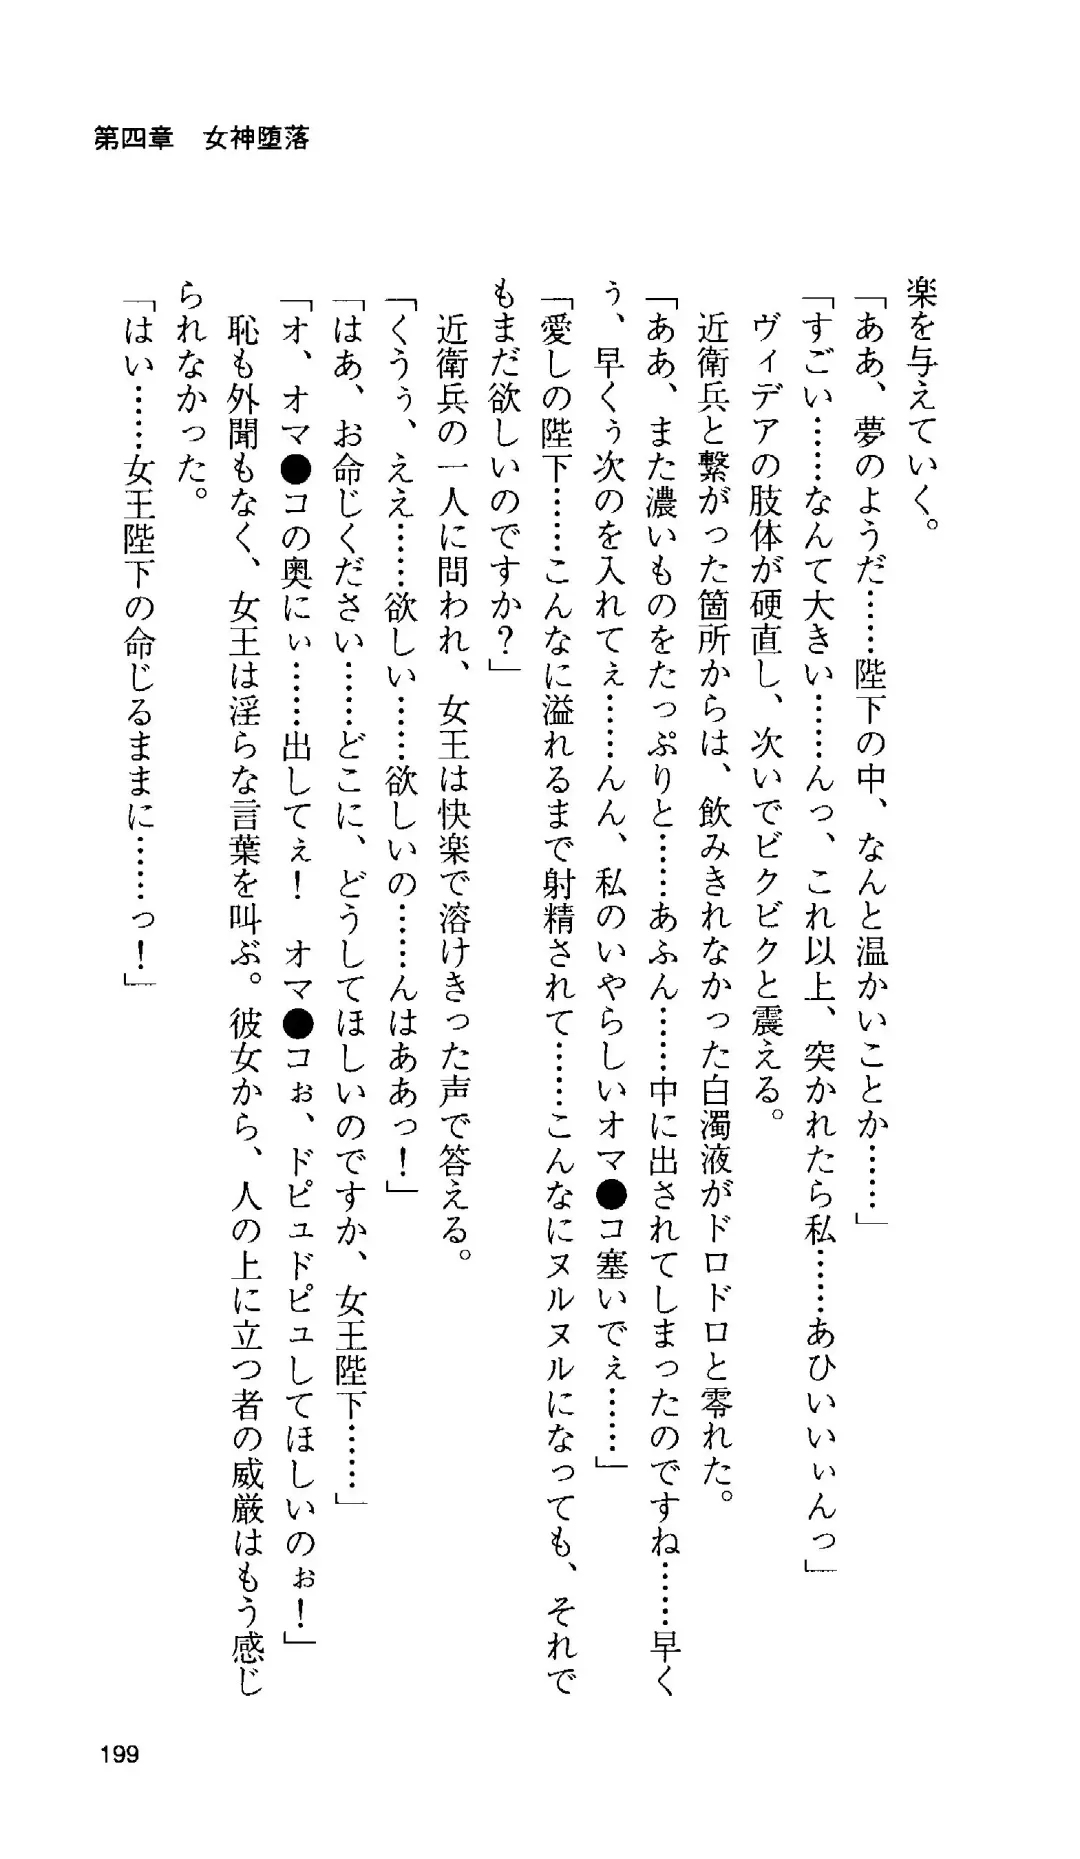 第四章　女神堕落
楽を与えていく。
「ああ、夢のようだ……陛下の中、なんと温かいことか……」
「すごい……なんて大きい……んっ、これ以上、突かれたら私……あひいいぃんっ」
ヴィデアの肢体が硬直し、次いでビクビクと震える。
近衛兵と繋がった箇所からは、飲みきれなかった白濁液がドロドロと零れた。
「ああ、また濃いものをたっぷりと……あふん……中に出されてしまったのですね……早く
ぅ、早くぅ次のを入れてぇ……んん、私のいやらしいオマ●コ塞いでぇ……」
「愛しの陛下……こんなに溢れるまで射精されて……こんなにヌルヌルになっても、それで
もまだ欲しいのですか？」
近衛兵の一人に問われ、女王は快楽で溶けきった声で答える。
「くうぅ、ええ……欲しい……欲しいの……んはああっ！」
「はあ、お命じください……どこに、どうしてほしいのですか、女王陛下……」
「オ、オマ●コの奥にぃ……出してぇ！　オマ●コぉ、ドピュドピュしてほしいのぉ！」
恥も外聞もなく、女王は淫らな言葉を叫ぶ。彼女から、人の上に立つ者の威厳はもう感じ
られなかった。
「はい……女王陛下の命じるままに……っ！」
199